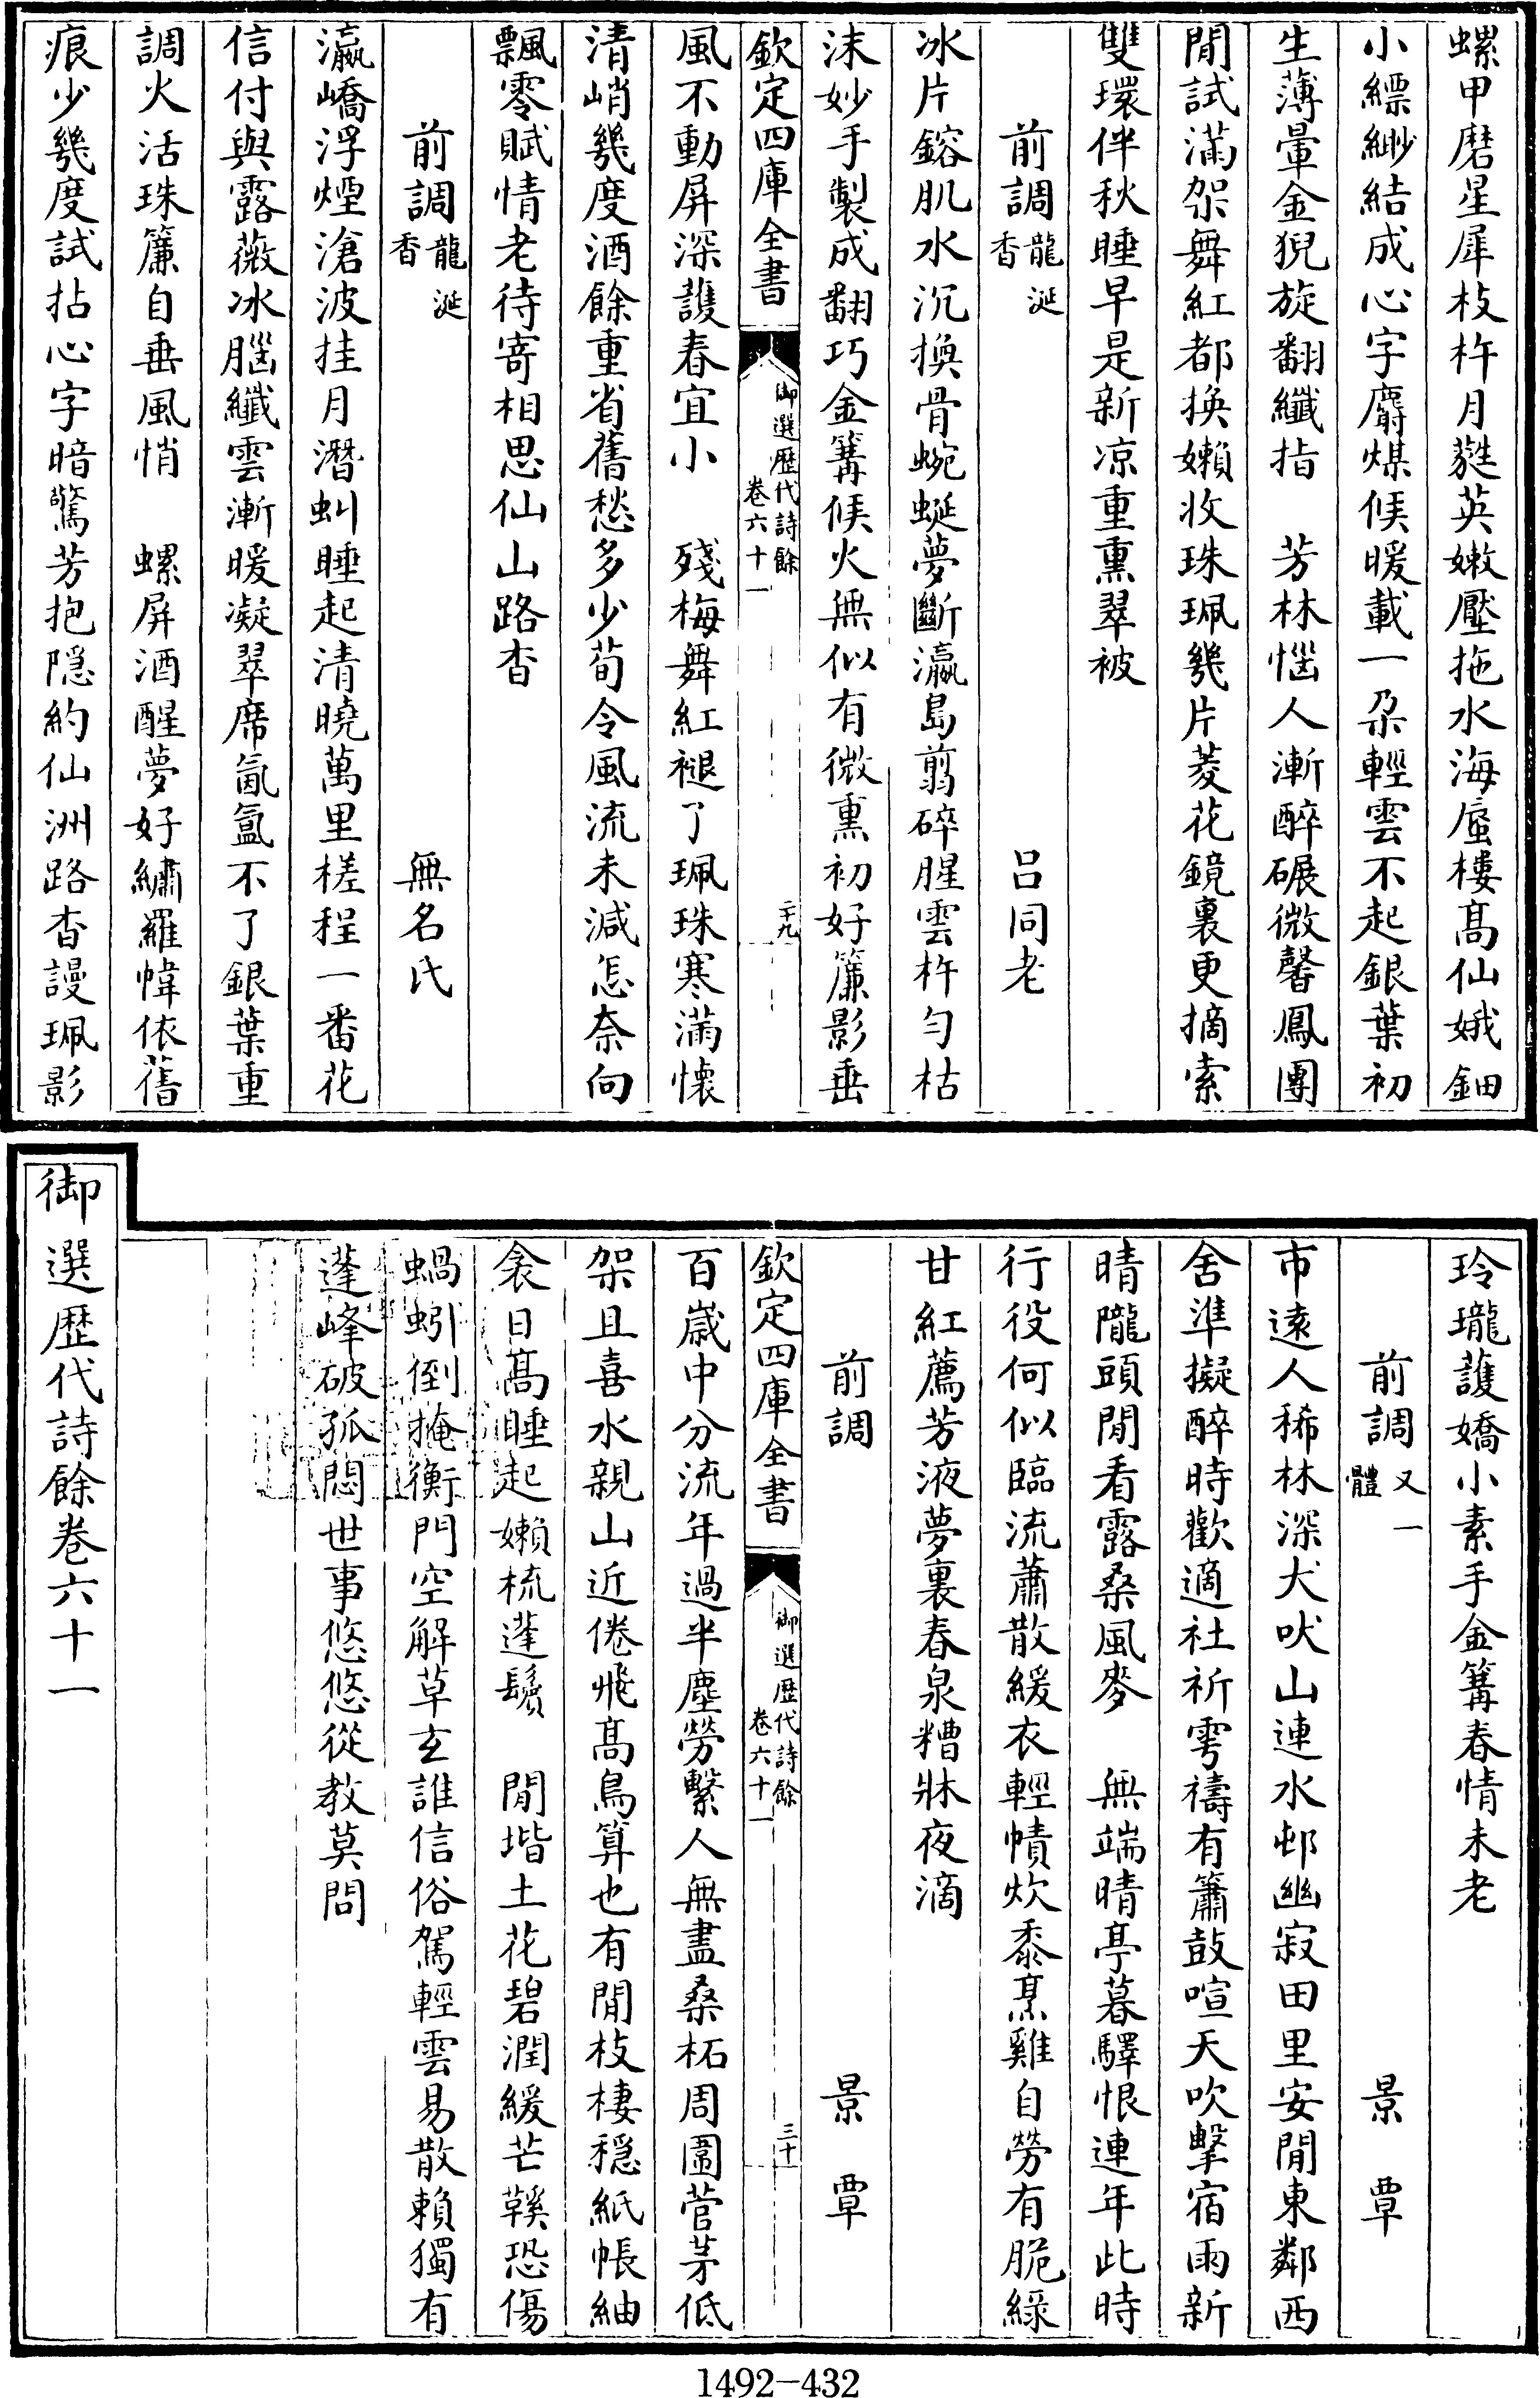 螺甲磨星犀枝杵月蕤英嫩壓拖水海蜃樓髙仙娥鈿
小縹緲結成心字麝煤候暖載一朶輕雲不起銀葉初
生薄暈金猊旋翻纖指　芳林惱人漸醉碾微馨鳳團
閒試滿架舞紅都換嬾收珠珮幾片菱花鏡裏更摘索
雙環伴秋睡早是新凉重熏翠被
前調龍涎香　呂同老
冰片鎔肌水沉換骨蜿蜒夢斷瀛島翦碎腥雲杵勻枯
沫妙手製成翻巧金篝候火無似有微熏初好簾影垂
欽定四庫全書　御選歴代詩餘　卷六十一　二十九
風不動屏深護春宜小　殘梅舞紅褪了珮珠寒滿懷
清峭幾度酒餘重省舊愁多少荀令風流未減怎奈向
飄零賦情老待寄相思仙山路杳
前調龍涎香　無名氏
瀛嶠浮煙滄波挂月潛虬睡起清曉萬里槎程一番花
信付與露薇冰腦纖雲漸暖凝翠席氤氳不了銀葉重
調火活珠簾自垂風悄　螺屏酒醒夢好繡羅幃依舊
痕少幾度試拈心字暗驚芳抱隠約仙洲路杳謾珮影
玲瓏護嬌小素手金篝春情未老
前調又一體　景覃
市遠人稀林深犬吠山連水邨幽寂田里安閒東鄰西
舍準擬醉時歡適社祈雩禱有簫鼓喧天吹擊宿雨新
晴隴頭閒看露桑風麥　無端晴亭暮驛恨連年此時
行役何似臨流蕭散緩衣輕幘炊黍烹雞自勞有脆緑
甘紅薦芳液夢裏春泉糟牀夜滴
前調　景覃
欽定四庫全書　御選歴代詩餘　卷六十一　三十
百嵗中分流年過半塵勞繫人無盡桑柘周圍菅茅低
架且喜水親山近倦飛髙鳥算也有閒枝棲穩紙帳紬
衾日髙睡起嬾梳蓬鬢　閒堦土花碧潤緩芒鞵恐傷
蝸蚓倒掩衡門空解草玄誰信俗駕輕雲易散賴獨有
蓬峰破孤悶世事悠悠從教莫問
御選歴代詩餘卷六十一
1492-432